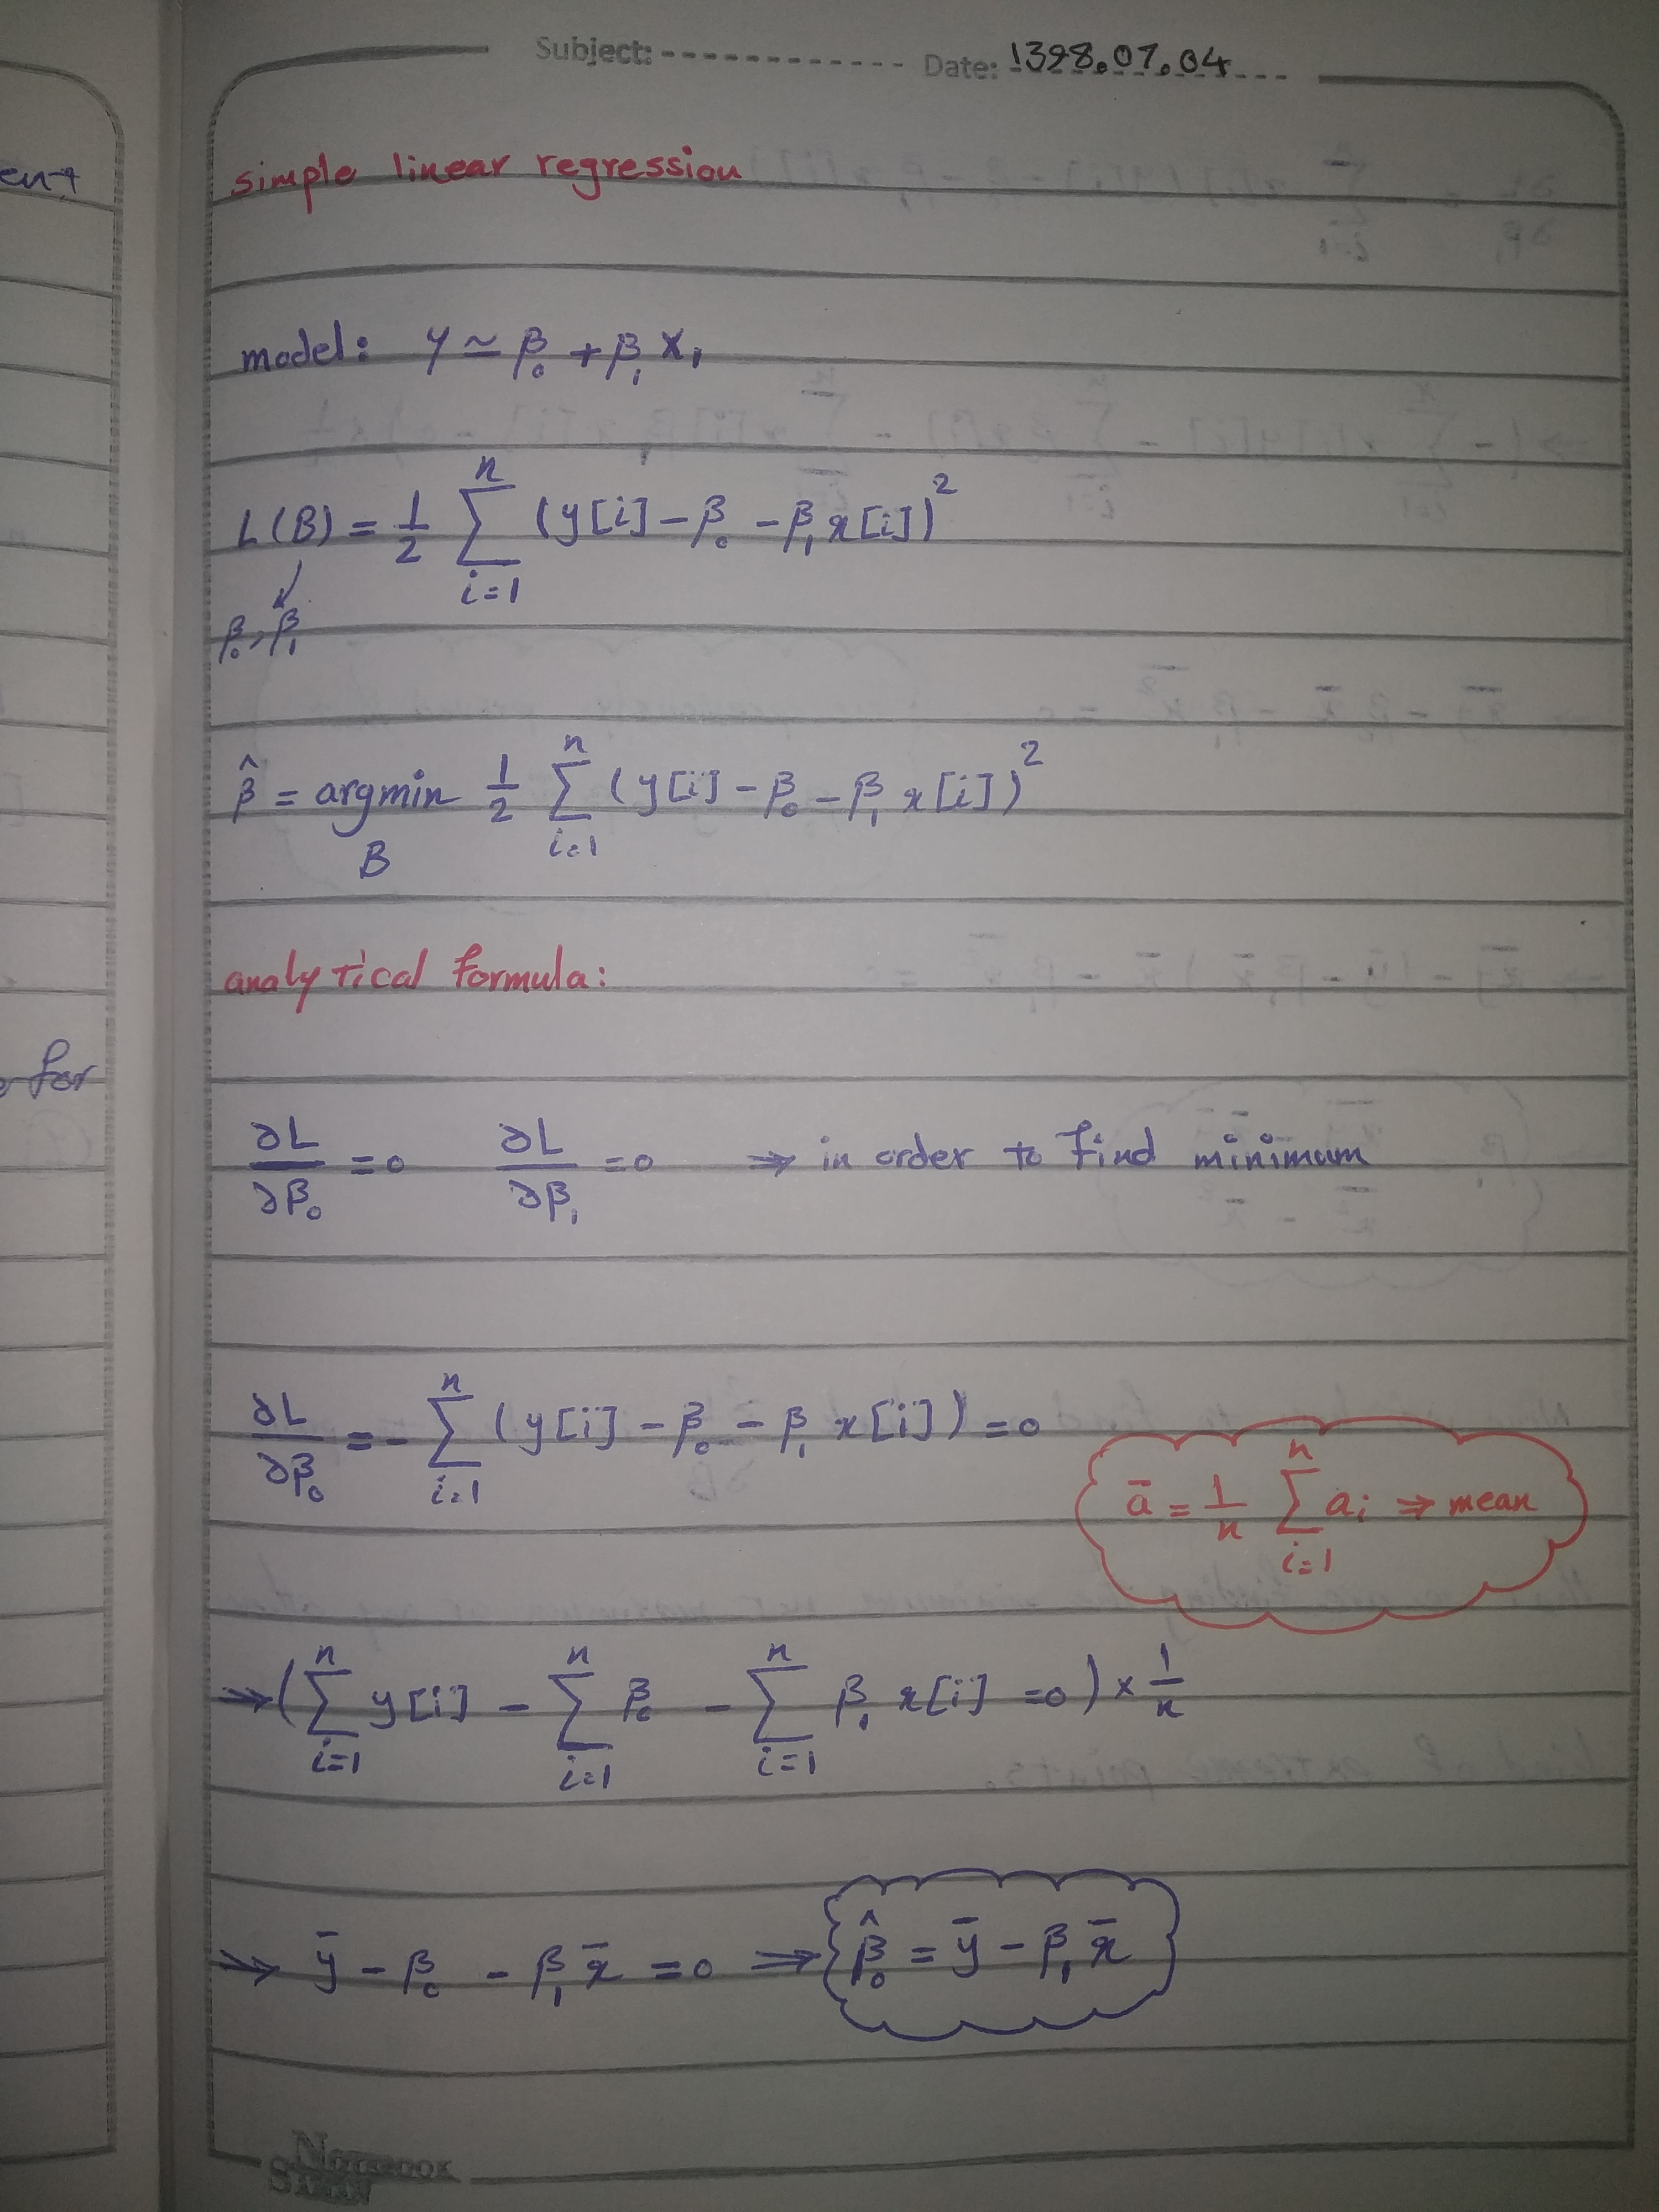 Subject: Date: 1398.07.04
ent
simple linear regression
model: y ≃ β₀ + β₁ X₁
L(B) = 1/2 ∑_{i=1}^{n} (y[i] - β₀ - β₁ x[i])²
β₀, β₁
β̂ = argmin_B 1/2 ∑_{i=1}^{n} (y[i] - β₀ - β₁ x[i])²
analytical formula:
for
∂L/∂β₀ = 0 ∂L/∂β₁ = 0 ⇒ in order to find minimum
∂L/∂β₀ = - ∑_{i=1}^{n} (y[i] - β₀ - β₁ x[i]) = 0
ā = 1/n ∑_{i=1}^{n} aᵢ ⇒ mean
⇒ (∑_{i=1}^{n} y[i] - ∑_{i=1}^{n} β₀ - ∑_{i=1}^{n} β₁ x[i] = 0) × 1/n
⇒ ȳ - β₀ - β₁ x̄ = 0 ⇒ β̂₀ = ȳ - β₁ x̄
NOTEBOOK